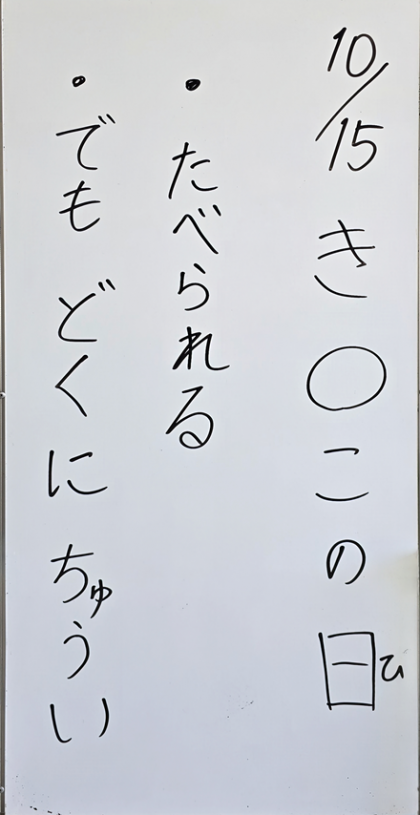 10/15 き〇この日ひ
・たべられる
・でも どくに ちゅうい